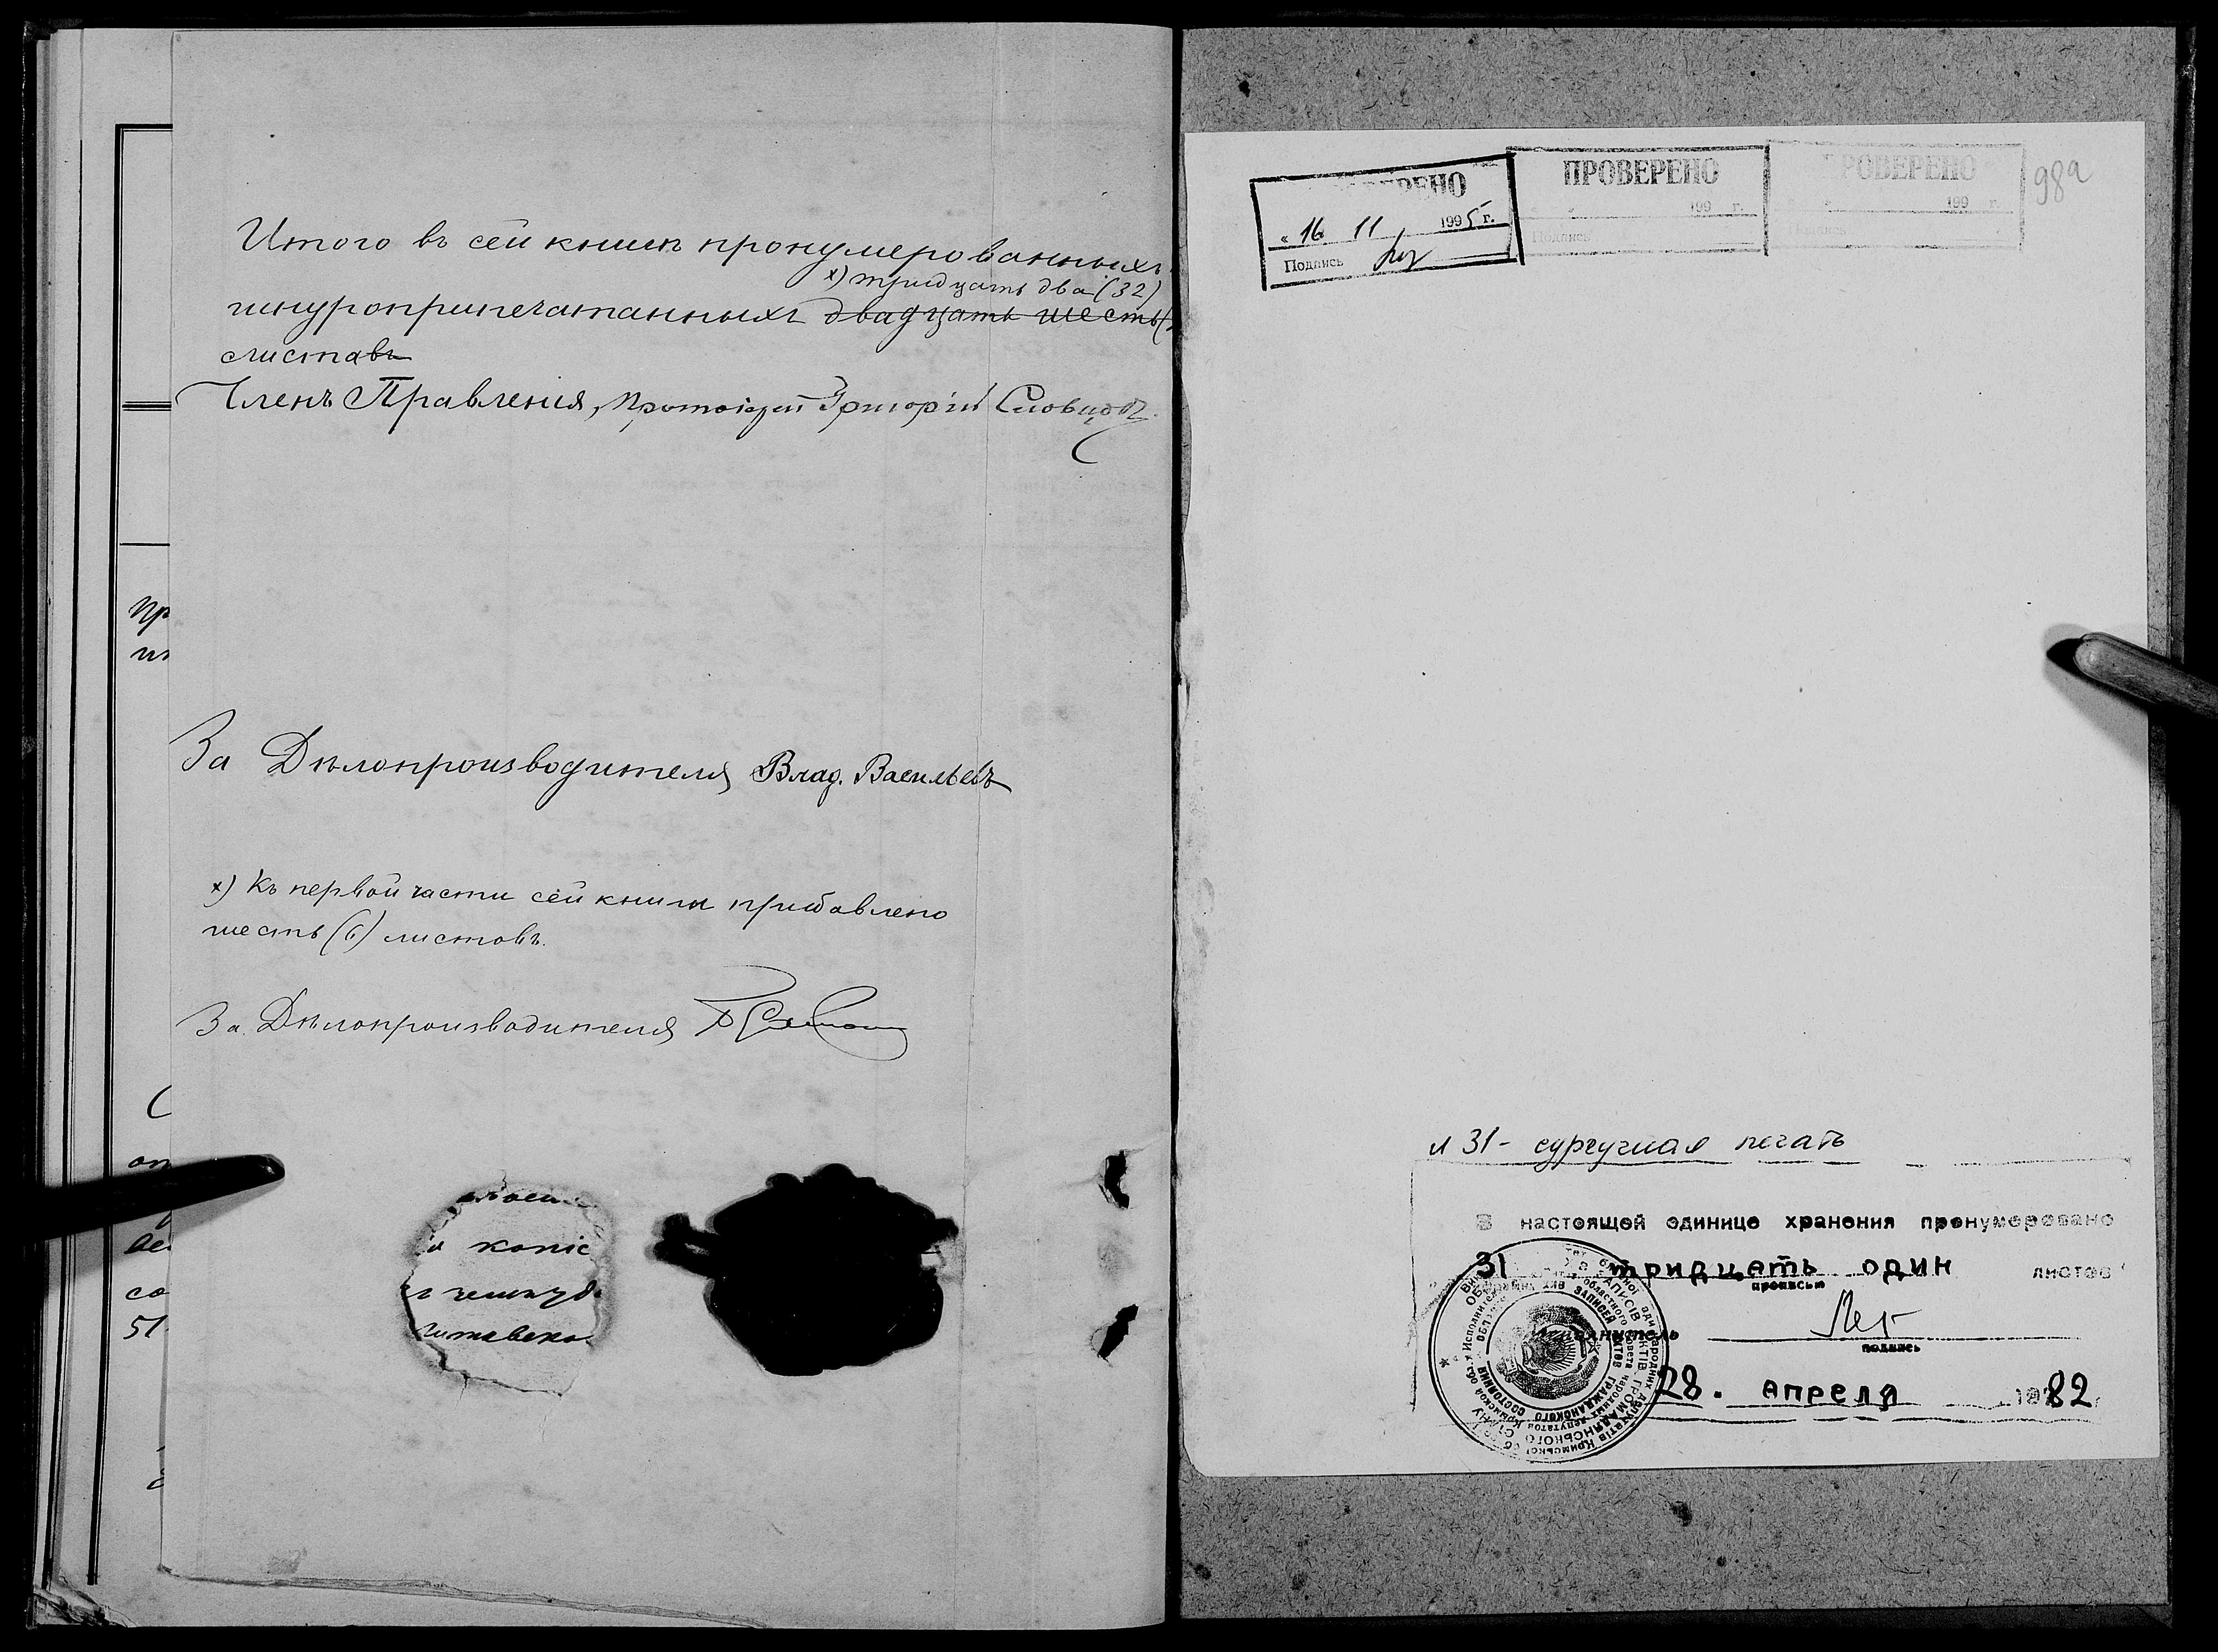 Итого въ сей книгѣ пронумерованныхъ
х) тридцать два (32)
шнуроприпечатанныхъ двадцать шесть (
листовъ
Членъ Правленія, Протоіерей Григорій Словцовъ.
За Дѣлопроизводителя Влад. Васильевъ
х) Къ первой части сей книги прибавлено
шесть (6) листовъ.
За Дѣлопроизводителя
пр
копіе
со
51
ПРОВЕРЕНО
ПРОВЕРЕНО
РОВЕРЕНО
98а
« 16 11 1995 г.
199 г.
199 г.
Подпись
Подпись
Подпись
л 31 - сургучная печать
В настоящей единице хранения пронумеровано
31 тридцать один листов
прописью
подпись
28. апреля 1982